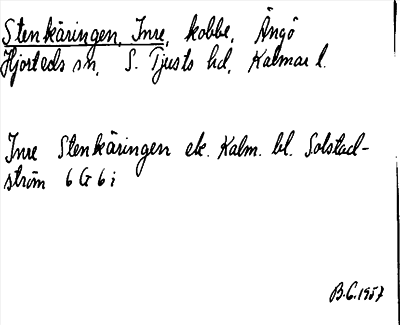 Stenkäringen, Inre, kobbe, Ängö
Hjorteds sn, S. Tjusts hd, Kalmar l.
Inre Stenkäringen ek. Kalm. bl. Solstad-
ström 6 G 6 i
B.C. 1957